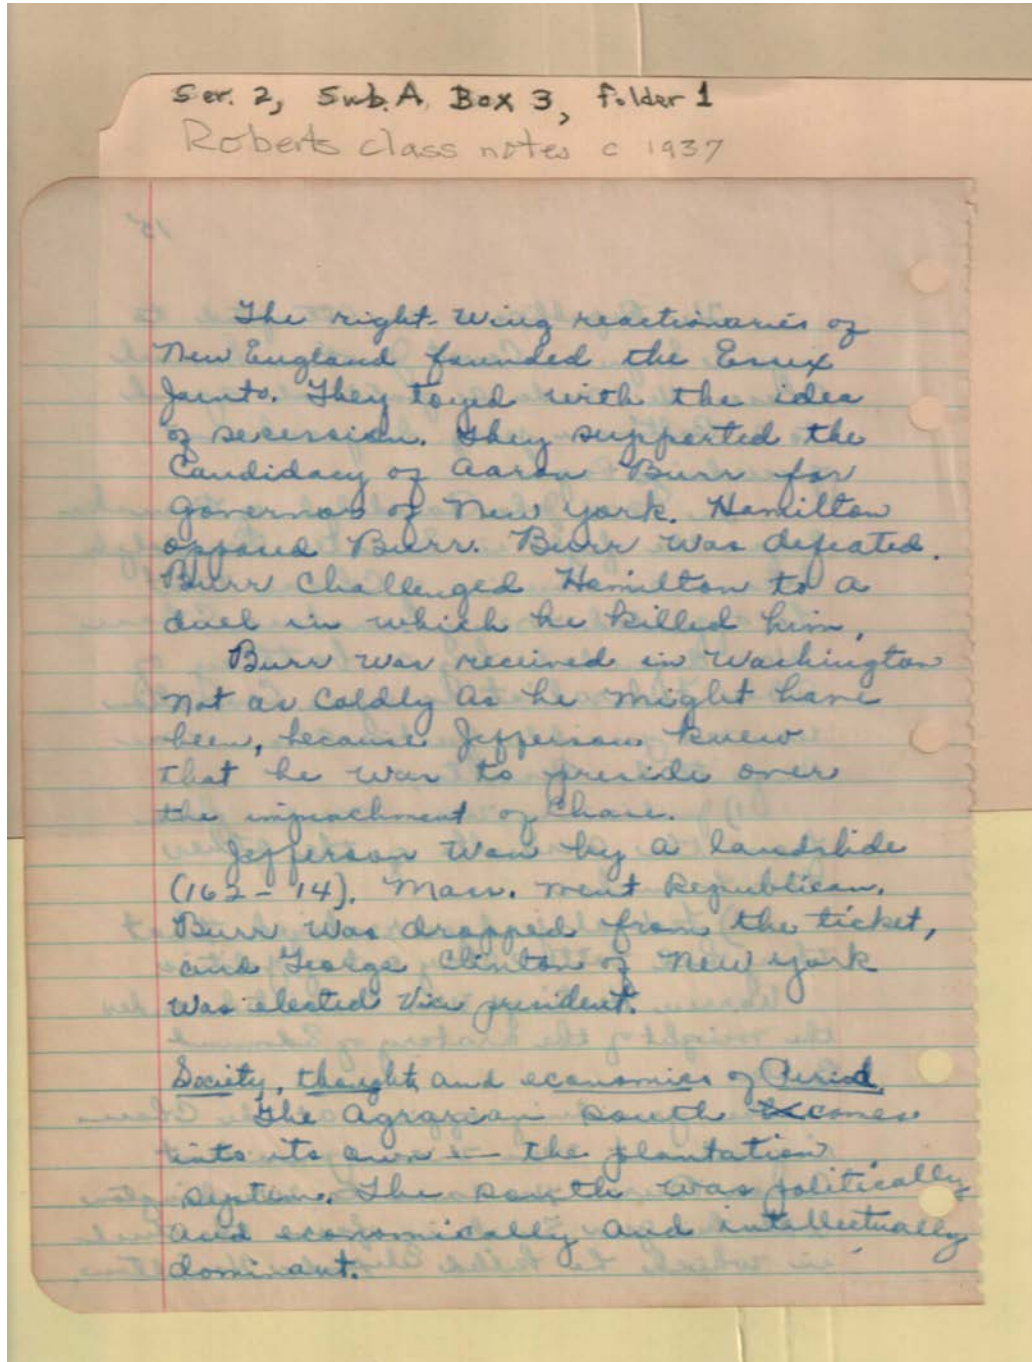 Ser. 2, Sub. A, Box 3, Folder 1
Roberts class notes c 1937
15
The right-wing reactionaries of
New England founded the Essex
Junto. They toyed with the idea
of secession. They supported the
Candidacy of Aaron Burr for
Governor of New York. Hamilton
opposed Burr. Burr was defeated.
Burr Challenged Hamilton to a
duel in which he killed him.
Burr was received in Washington
not as Coldly as he might have
been, because Jefferson knew
that he was to preside over
the impeachment of Chase.
Jefferson won by a landslide
(162-14). Mass. went Republican.
Burr was dropped from the ticket,
and George Clinton of New York
was elected Vice president.
Society, thought, and economics of Period.
The Agrarian South comes
into its own — the plantation
system. The South was politically
and economically and intellectually
dominant.